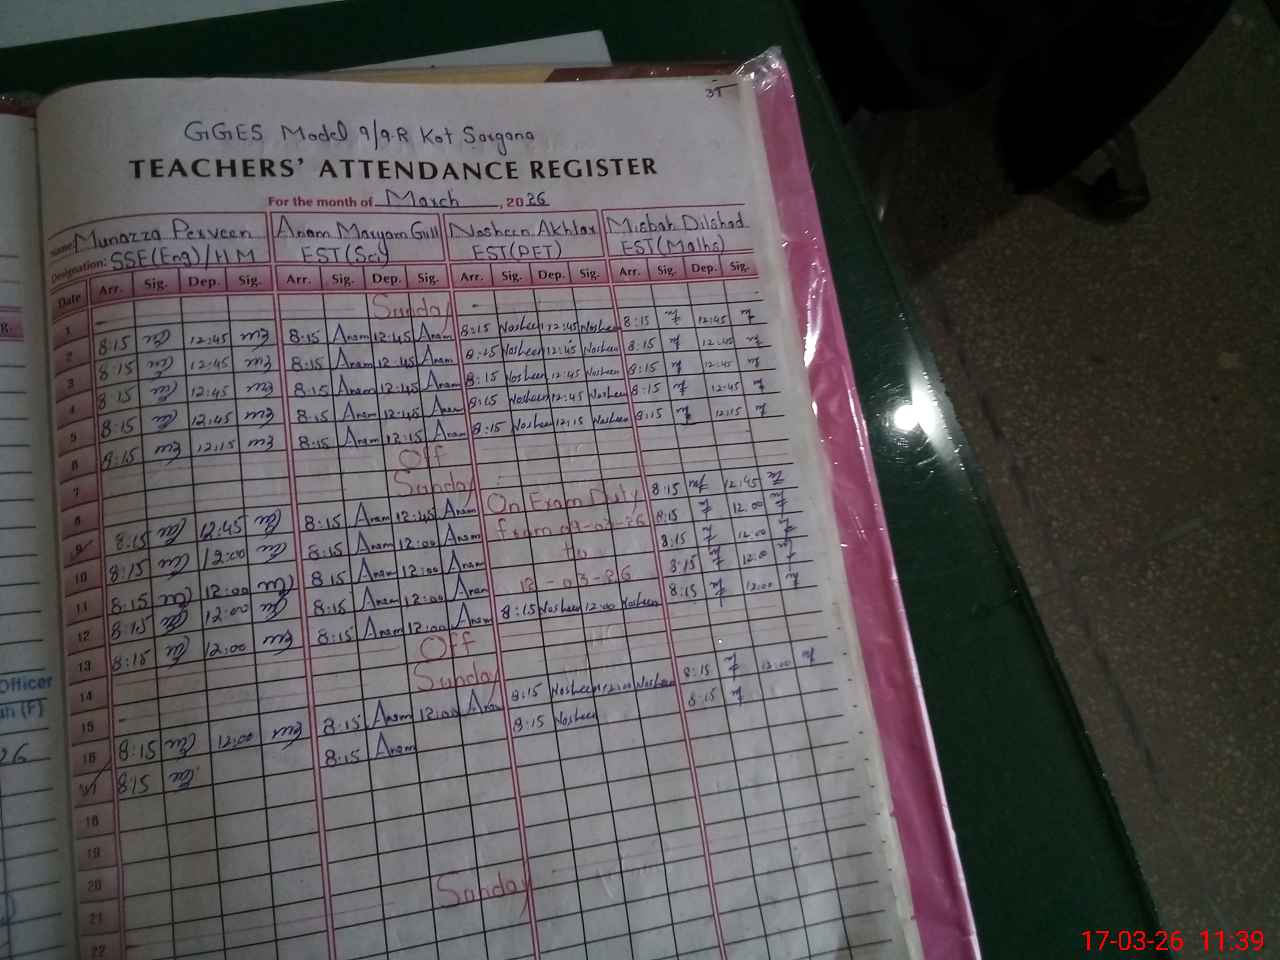 31
GGES Model 9/9-R Kot Sargana
TEACHERS' ATTENDANCE REGISTER
For the month of March, 2026
Name: Munazza Perveen Anam Maryam Gull Nosheen Akhtar Misbah Dilshad
Designation: SSE(Eng)/HM EST(Sci) EST(PET) EST(Maths)
Date Arr. Sig. Dep. Sig. Arr. Sig. Dep. Sig. Arr. Sig. Dep. Sig. Arr. Sig. Dep. Sig.
1 Sunday
2 8:15 12:45 8:15 Anam 12:45 Anam 8:15 Nosheen 12:45 Nosheen 8:15 12:45
3 8:15 12:45 8:15 Anam 12:45 Anam 8:15 Nosheen 12:45 Nosheen 8:15 12:45
4 8:15 12:45 8:15 Anam 12:45 Anam 8:15 Nosheen 12:45 Nosheen 8:15 12:45
5 8:15 12:45 8:15 Anam 12:45 Anam 8:15 Nosheen 12:45 Nosheen 8:15 12:45
6 8:15 12:15 8:15 Anam 12:15 Anam 8:15 Nosheen 12:15 Nosheen 8:15 12:15
7 Off
8 Sunday
9 8:15 12:45 8:15 Anam 12:45 Anam On Exam Duty 8:15 12:45
10 8:15 12:00 8:15 Anam 12:00 Anam from 8:15 12:00
11 8:15 12:00 8:15 Anam 12:00 Anam to 8:15 12:00
12 8:15 12:00 8:15 Anam 12:00 Anam 12-03-26 8:15 12:00
13 8:15 12:00 8:15 Anam 12:00 Anam 8:15 Nosheen 12:00 Nosheen 8:15 12:00
14 Off
15 Sunday
16 8:15 12:00 8:15 Anam 12:00 Anam 8:15 Nosheen 12:00 Nosheen 8:15 12:00
17 8:15 8:15 Anam 8:15 Nosheen 8:15
18
19
20
21 Sunday
22
Officer
(F)
26
17-03-26 11:39